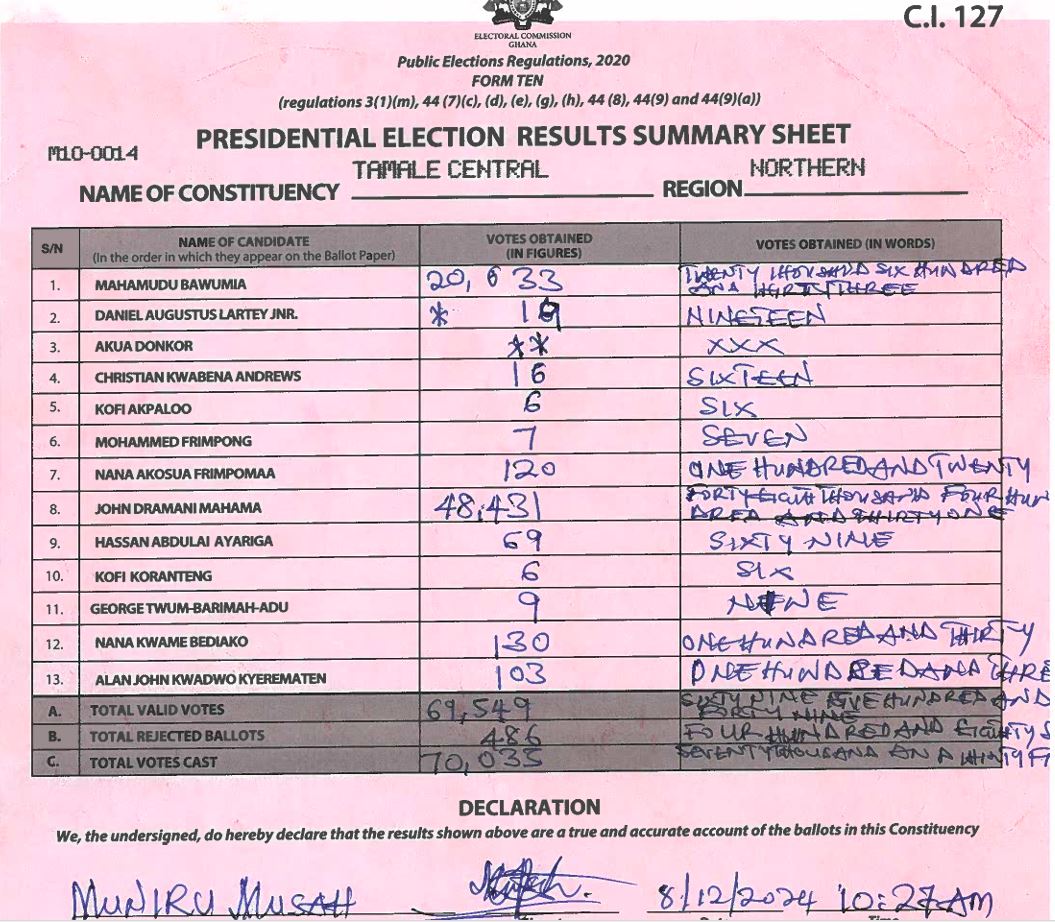 C.I. 127
ELECTORAL COMMISSION
GHANA
Public Elections Regulations, 2020
FORM TEN
(regulations 3(1)(m), 44 (7)(c), (d), (e), (g), (h), 44 (8), 44(9) and 44(9)(a))
PRESIDENTIAL ELECTION RESULTS SUMMARY SHEET
M10-0014
TAMALE CENTRAL NORTHERN
NAME OF CONSTITUENCY REGION
S/N NAME OF CANDIDATE VOTES OBTAINED VOTES OBTAINED (IN WORDS)
(In the order in which they appear on the Ballot Paper) (IN FIGURES)
1. MAHAMUDU BAWUMIA 20,633 TWENTY THOUSAND SIX HUNDRED
AND THIRTY THREE
2. DANIEL AUGUSTUS LARTEY JNR. * 19 NINETEEN
3. AKUA DONKOR ** XXX
4. CHRISTIAN KWABENA ANDREWS 16 SIXTEEN
5. KOFI AKPALOO 6 SIX
6. MOHAMMED FRIMPONG 7 SEVEN
7. NANA AKOSUA FRIMPOMAA 120 ONE HUNDRED AND TWENTY
8. JOHN DRAMANI MAHAMA 48,431 FORTY EIGHT THOUSAND FOUR HUN
DRED AND THIRTY ONE
9. HASSAN ABDULAI AYARIGA 69 SIXTY NINE
10. KOFI KORANTENG 6 SIX
11. GEORGE TWUM-BARIMAH-ADU 9 NINE
12. NANA KWAME BEDIAKO 130 ONE HUNDRED AND THIRTY
13. ALAN JOHN KWADWO KYEREMATEN 103 ONE HUNDRED AND THRE
A. TOTAL VALID VOTES 69,549 SIXTY NINE FIVE HUNDRED AND
FORTY NINE
B. TOTAL REJECTED BALLOTS 486 FOUR HUNDRED AND EIGHTY S
C. TOTAL VOTES CAST 70,035 SEVENTY THOUSAND AND THIRTY FI
DECLARATION
We, the undersigned, do hereby declare that the results shown above are a true and accurate account of the ballots in this Constituency
MUNIRU MUSAH 8/12/2024 10:27AM